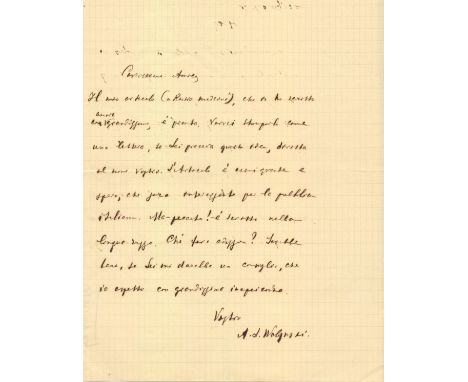 Carissimo Amico
Il mio articolo (a Russo moderni), che io ho scritto
amore
con grandissimo, è pronto. Vorrei stamparlo come
una lettera, se Lei piacerà questa idea, diretta
al nome Vostro. L'Articolo è assai grande e
spero, che sara interessante per la pubblica
italiana. Ma-peccato!-è scritto nella
lingua russa. Che fare adesso? Sarebbe
bene, se Lei mi darebbe un consiglio, che
io aspetto con grandissima impazienza.
Vostro
A. L. Wolynski.